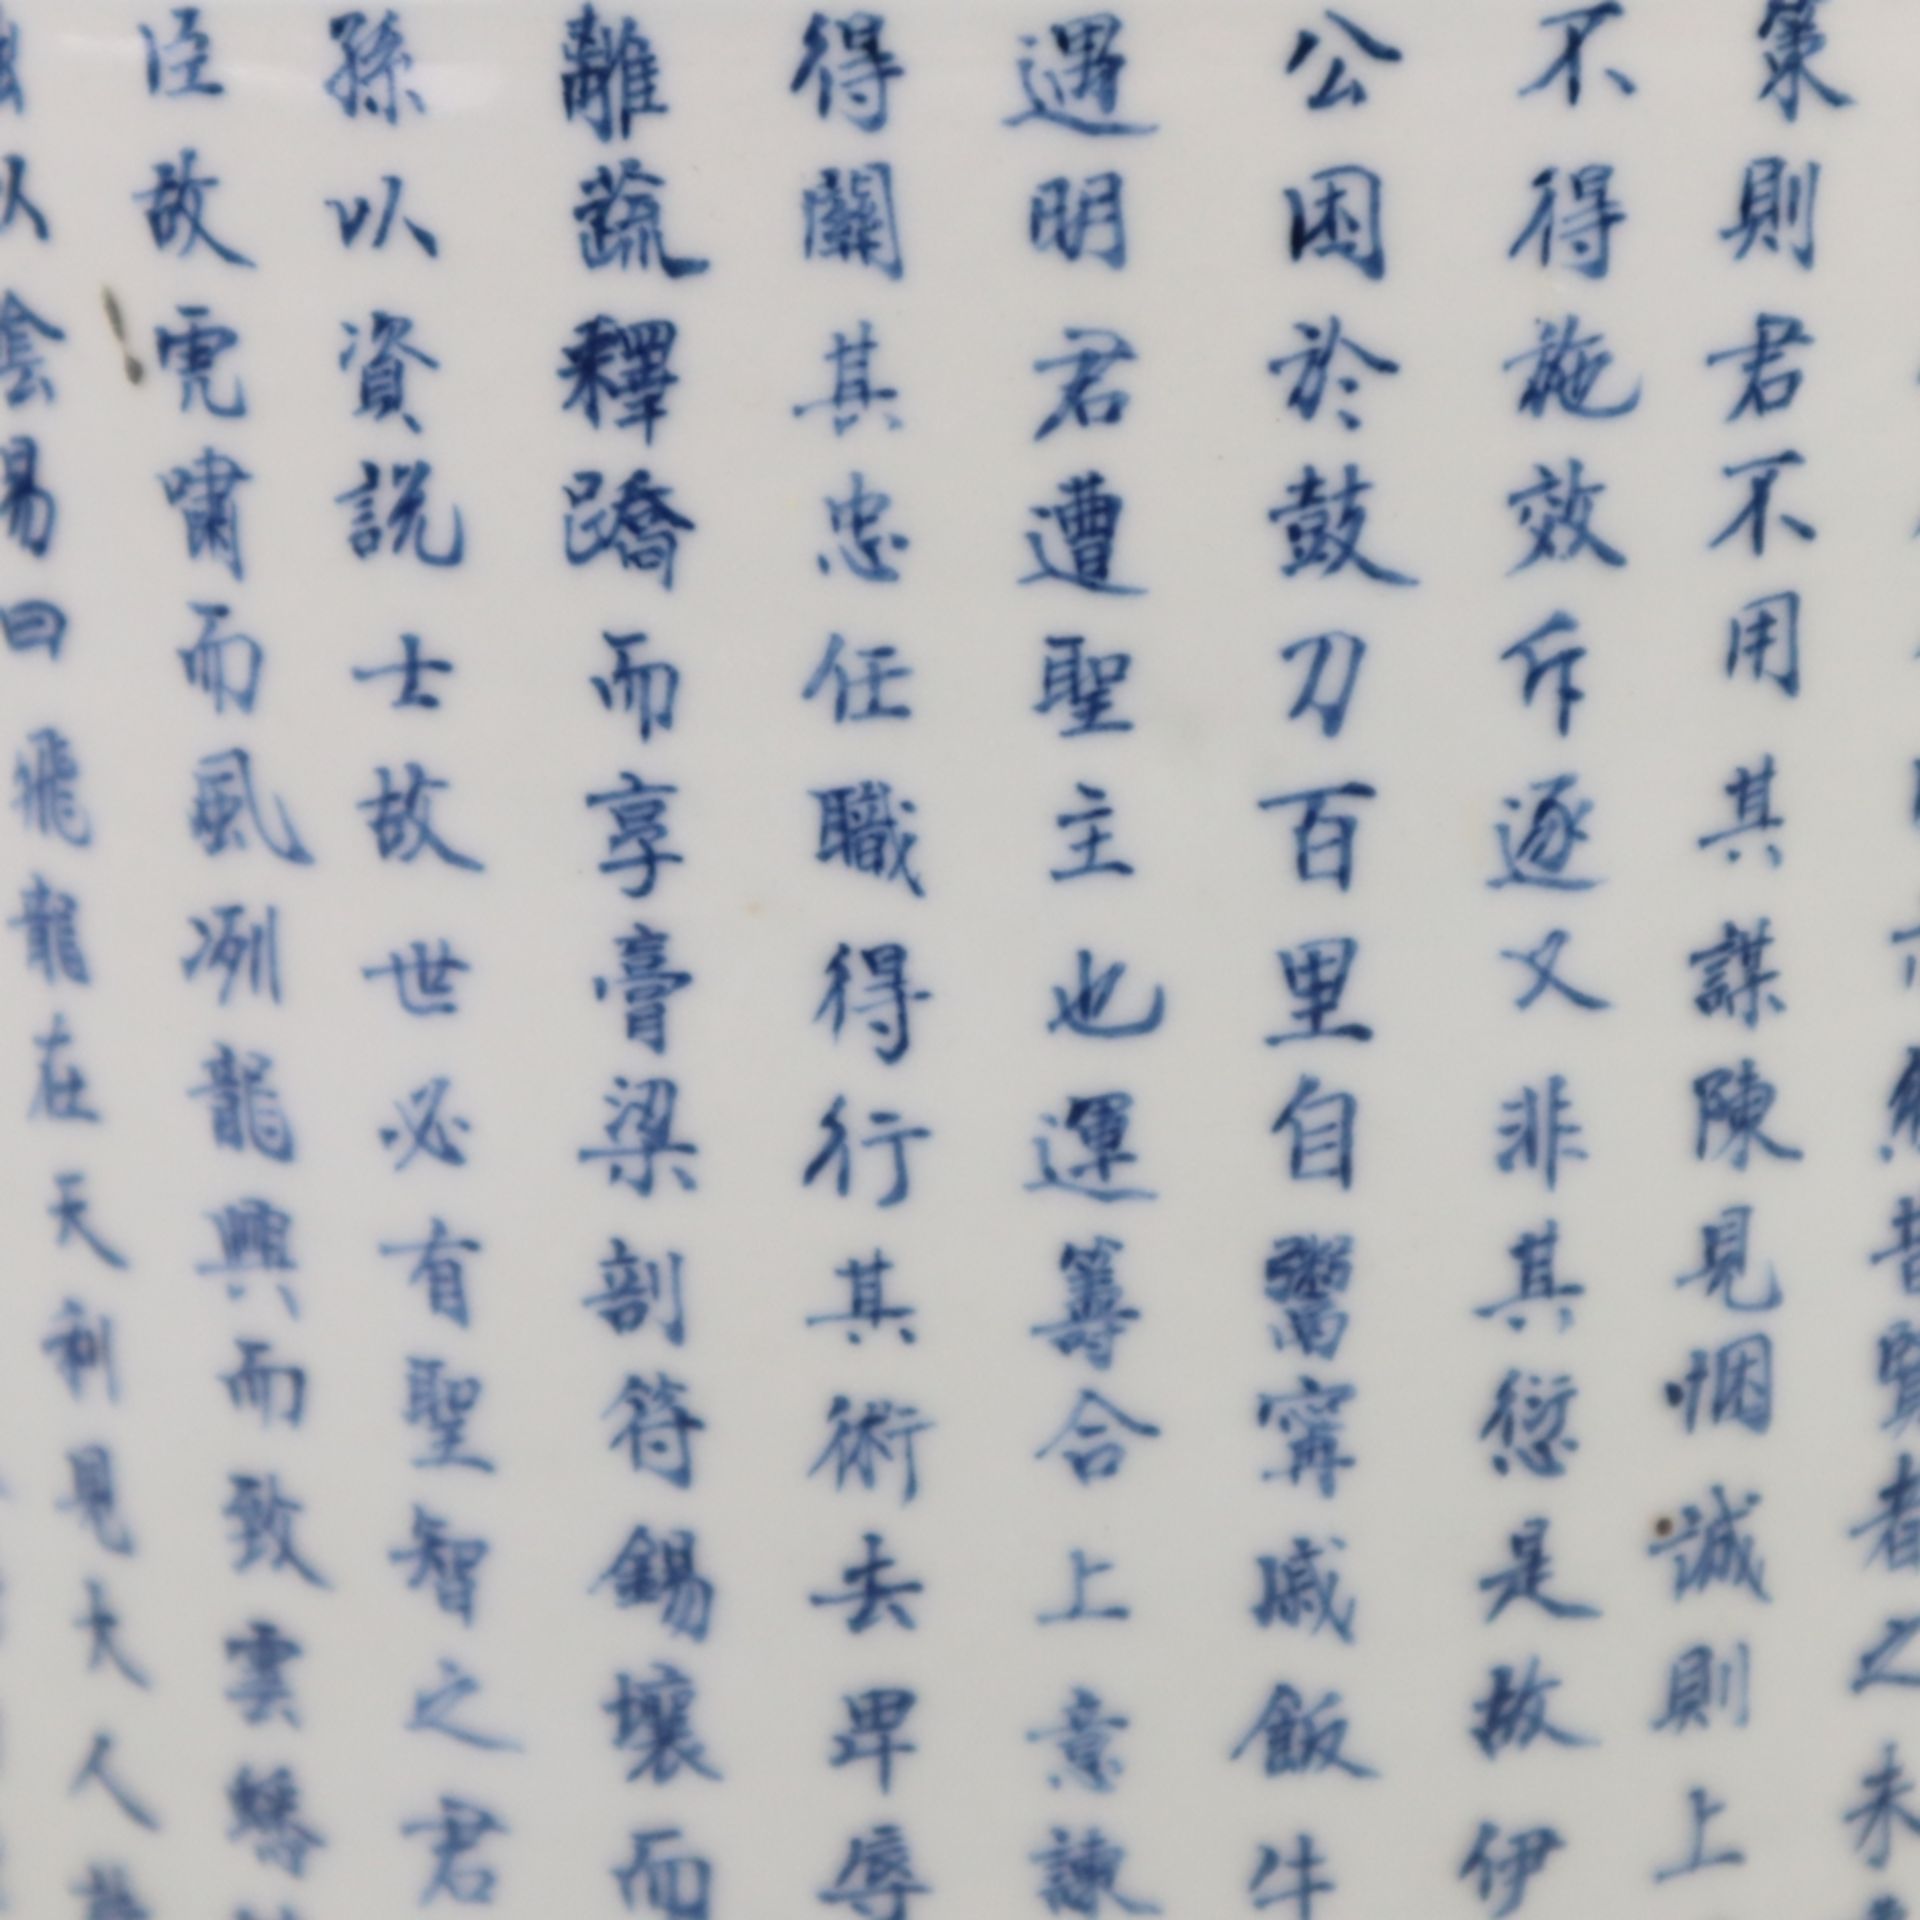 然昔賢者之未
策則君不用其謀陳見悃誠則上
不得施效斥逐又非其愆是故伊
公困於鼓刀百里自鬻寗戚飯牛
遇明君遭聖主也運籌合上意諫
得關其忠任職得行其術去卑辱
離蔬釋蹻而享膏粱剖符錫壤而
孫以資説士故世必有聖智之君
臣故虎嘯而風冽龍興而致雲
以易曰飛龍在天利見大人